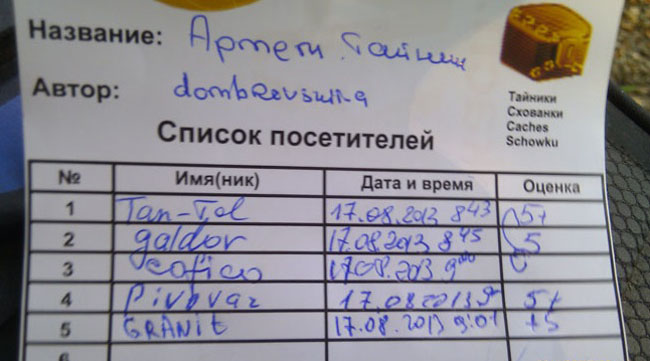 Название: Артеги. Тайник
Автор: dombrevskiia
Тайники
Схованки
Caches
Schowku
Список посетителей
№ Имя(ник) Дата и время Оценка
1 Tan-Tol 17.08.2013 8 43 5+
2 galdor 17.08.2013 8 45 5
3 cofico 17.08.2013 9 00
4 Pivovar 17.08.2013 9 5+
5 GRANit 17.08.2013 9:01 +5